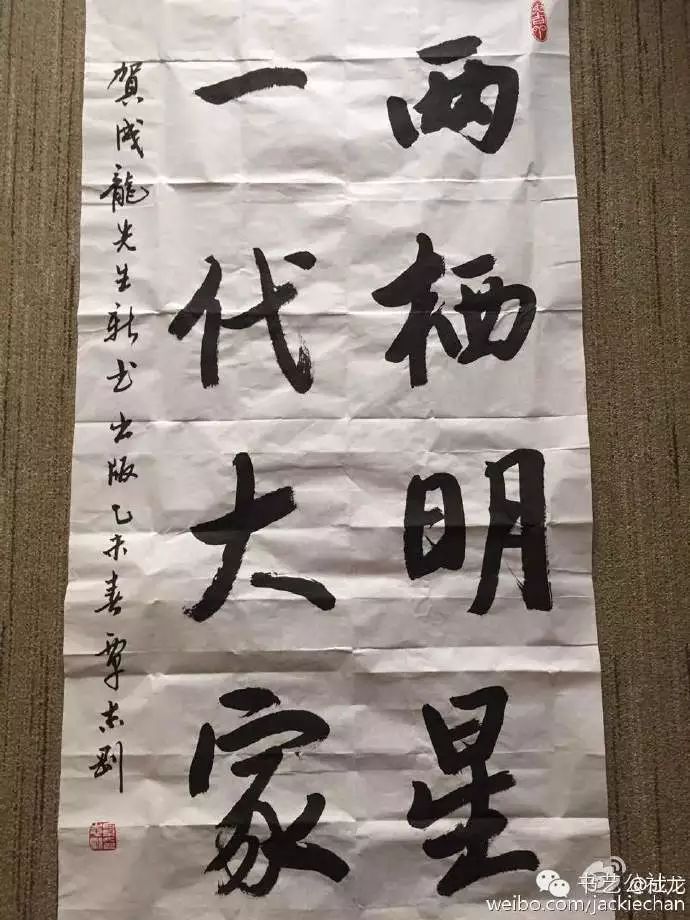 两栖明星
一代大家
賀成龍先生新书出版乙未春覃志刚
书艺公社
@成龙
weibo.com/jackiechan